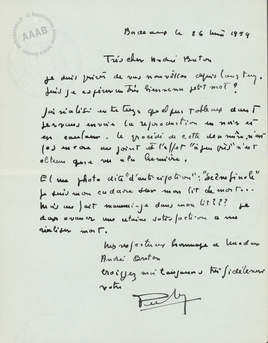 Bordeaux le 26 mai 1959
Très cher André Breton
je suis privé de vos nouvelles depuis longtemps
puis-je espérer un très bienveillant petit mot ?
J'ai réalisé entre temps quelques tableaux dont
je pense vous la reproduction en noir et
en couleur. le procédé de cette dernière n'est
pas encore au point et l'effet "à peu près" n'est
obtenu que
Et une photo dite "d'anticipation" :
je suis mon cadavre sur mon lit de mort...
mis au fait dans mon lit ????? je
dois avouer une certaine satisfaction a me
réaliser mort.
Mes respectueux hommages à Madame
André Breton
croyez moi toujours très fidèlement
votre
AAAB